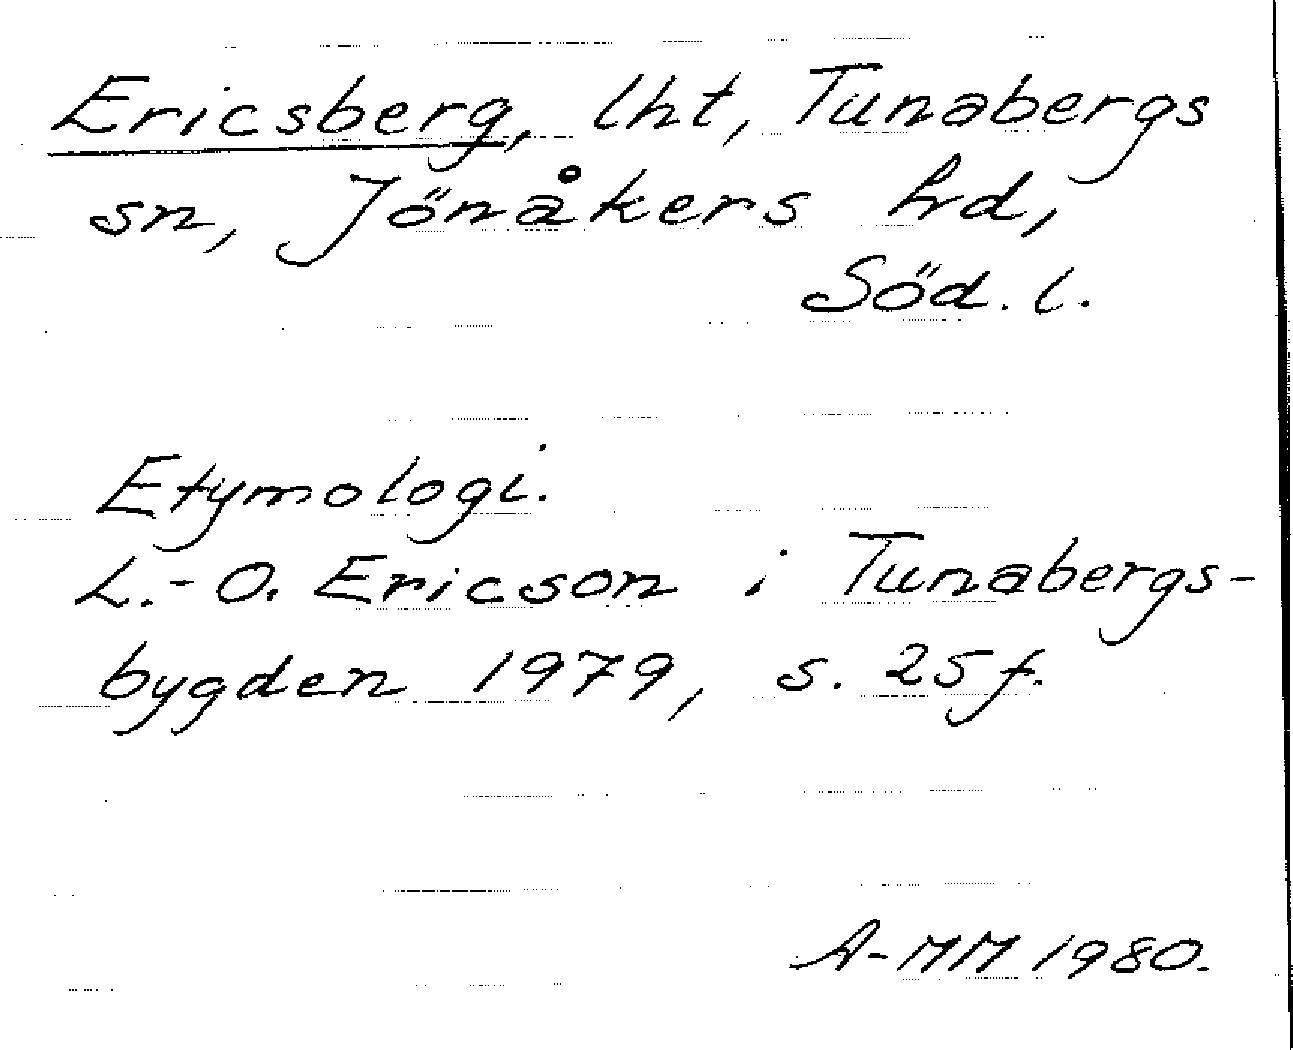 Ericsberg, lht, Tunabergs
sn, Jönåkers hrd,
Söd. l.
Etymologi.
L.-O. Ericson i Tunabergs-
bygden 1979, s. 25 f.
A-MM 1980.